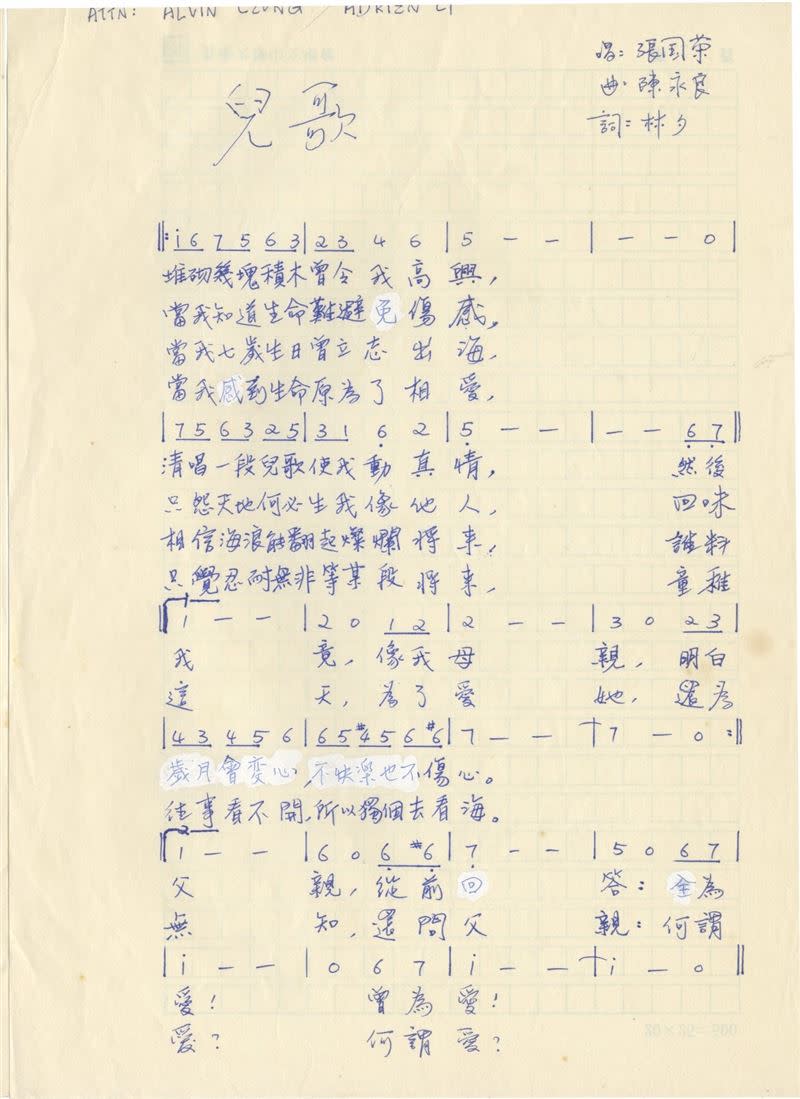 ATTN: ALVIN LEONG / ADRIEN LI
唱: 張国荣
曲: 陳永良
詞: 林夕
兒歌
‖: i 6 7 5 6 3 | 2 3 4 6 | 5 – – | – – 0 |
堆砌幾塊積木曾令我高興,
當我知道生命難避免傷感,
當我七歲生日曾立志出海,
當我感到生命原為了相愛,
| 7 5 6 3 2 5 | 3 1 6 2 | 5 – – | – – 6 7 ‖
清唱一段兒歌使我動真情, 然後
只怨天地何必生我像他人, 回味
相信海浪能翻起燦爛將来, 誰料
只覺忍耐無非等某段將来, 童稚
‖ 1 – – | 2 0 1 2 | 2 – – | 3 0 2 3 |
我 竟, 像我母 親, 明白
這 天, 為了愛 她, 還為
| 4 3 4 5 6 | 6 5 #4 5 6 #6 | 7 – – | 7 – 0 :‖
歲月會变心, 不快樂也不傷心。
往事看不開, 所以獨個去看海。
2
‖ 1 – – | 6 0 6 #6 | 7 – – | 5 0 6 7 |
父 親, 從前回 答: 全為
無 知, 還問父 親: 何謂
| i – – | 0 6 7 | i – – | i – 0 ‖
愛! 曾為愛!
愛? 何謂愛?